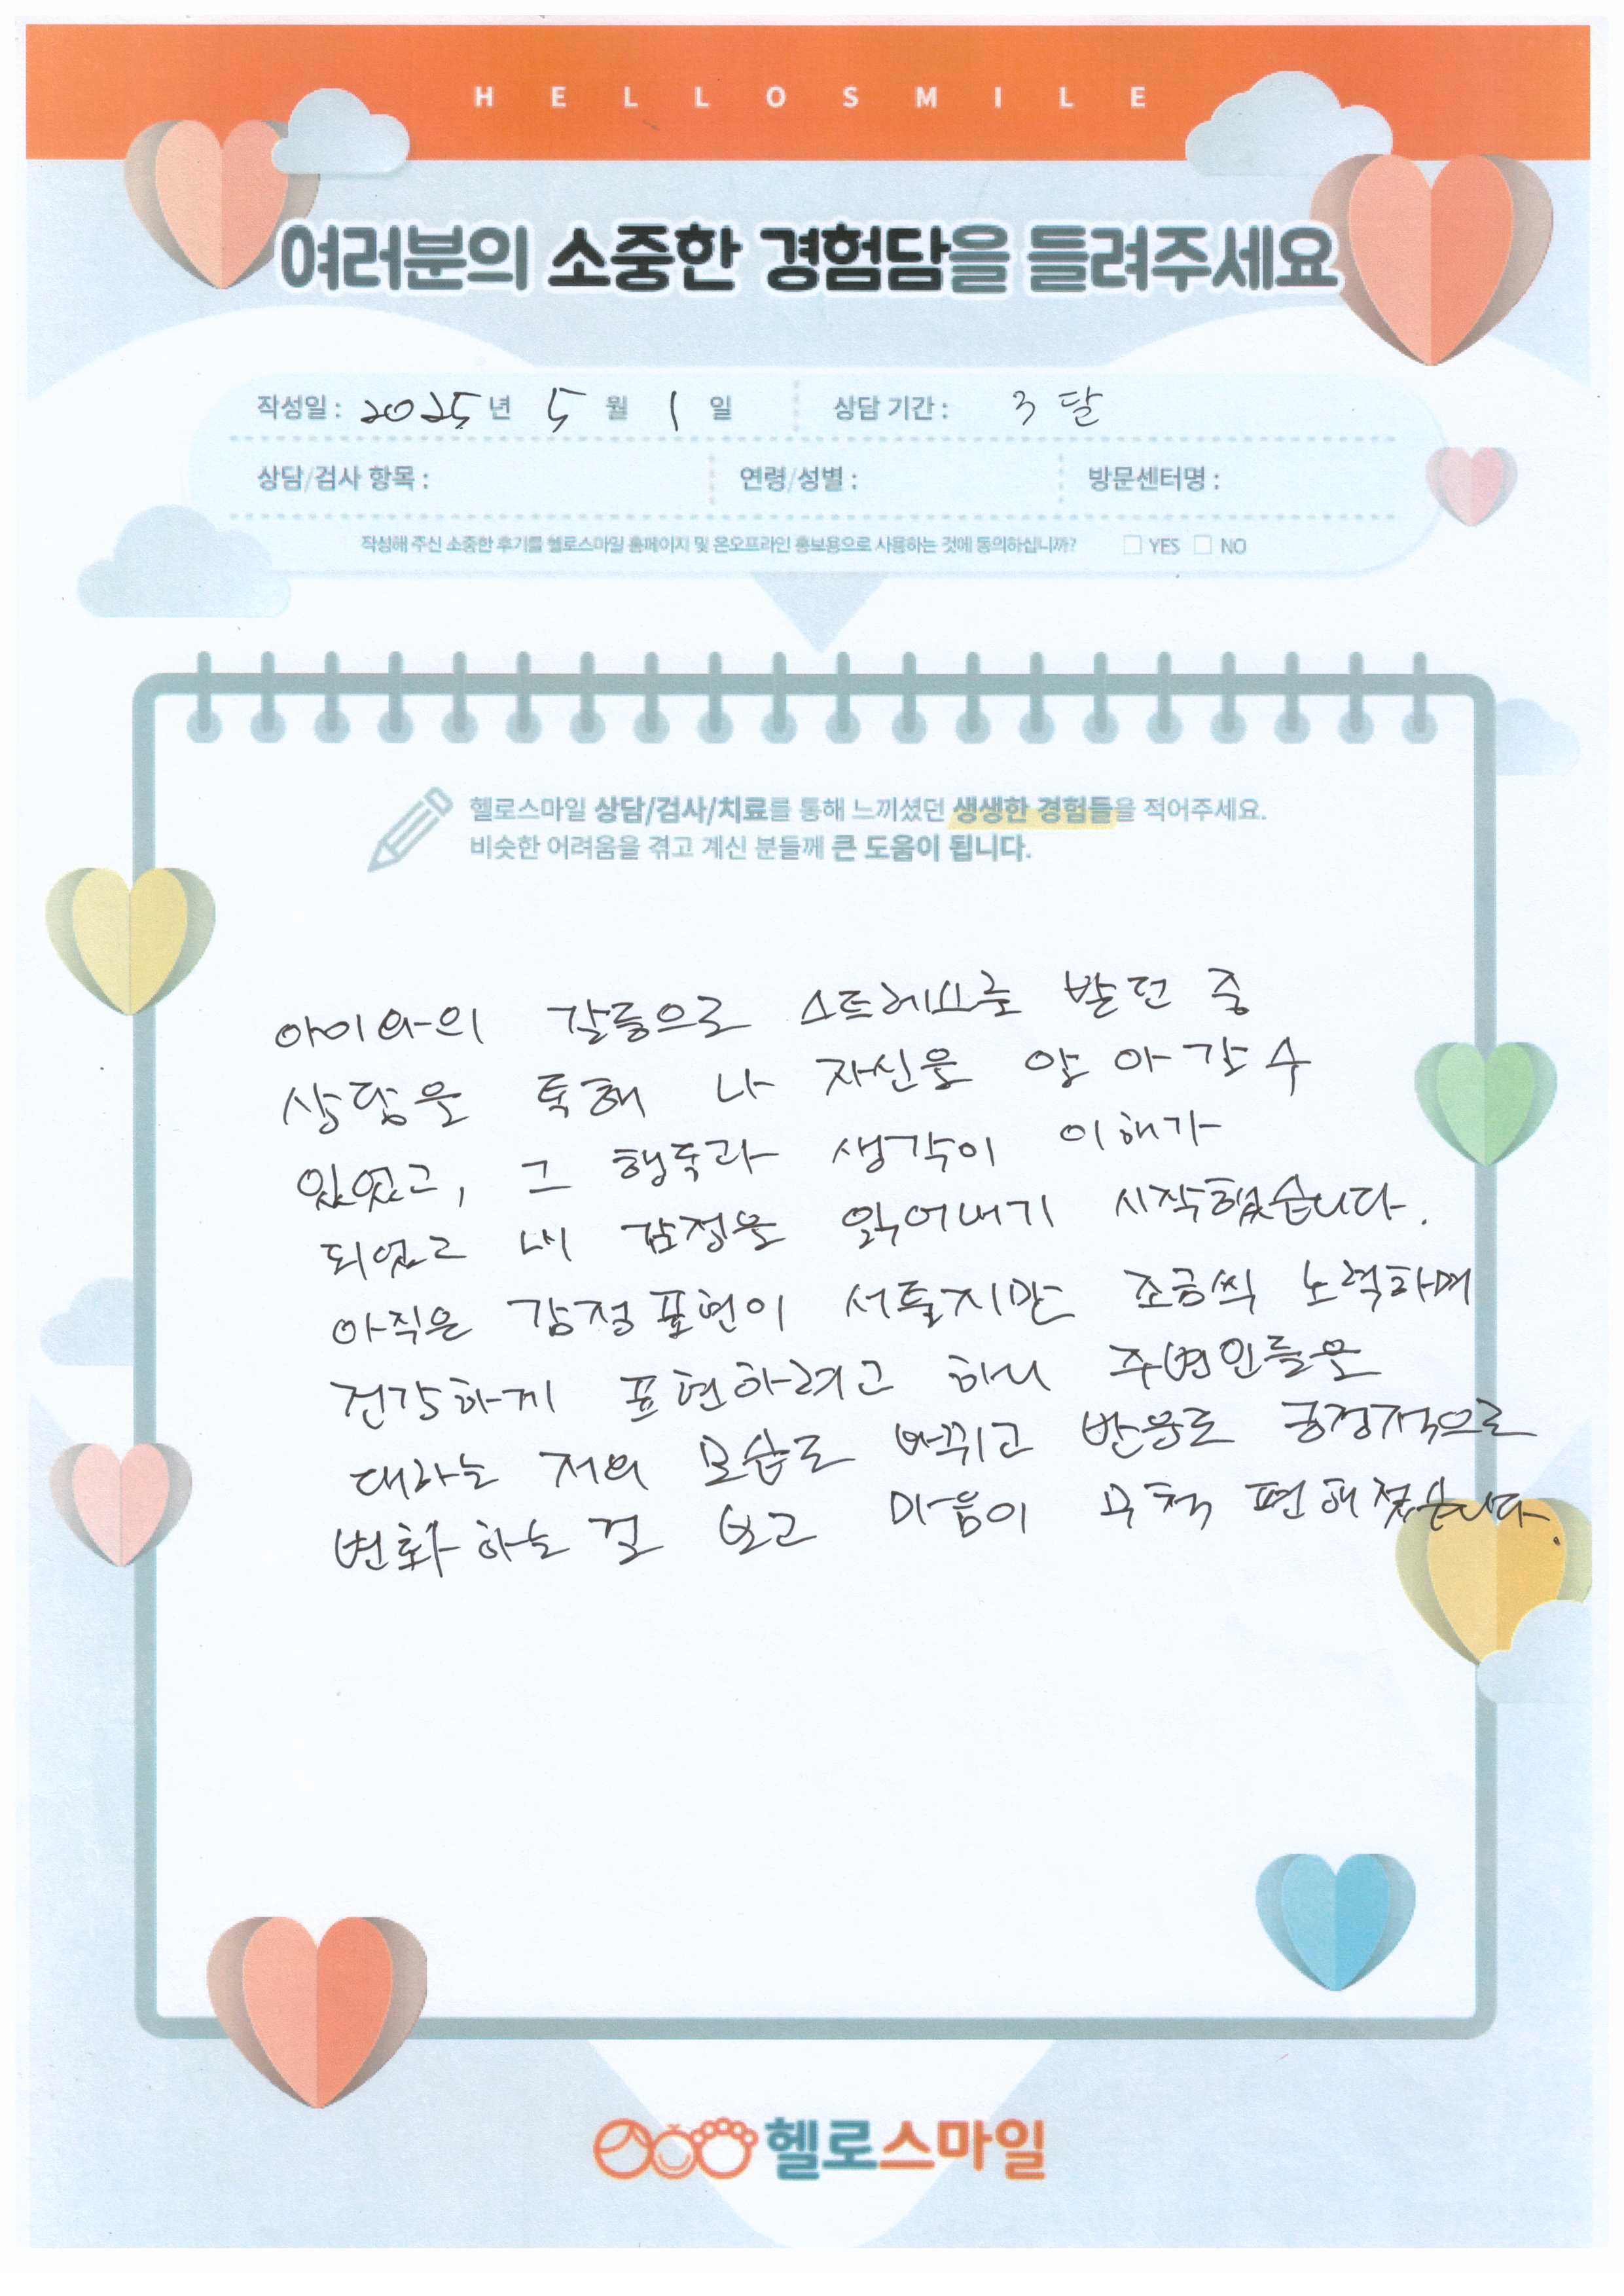 HELLOSMILE
여러분의 소중한 경험담을 들려주세요
작성일 : 2025년 5월 1일 상담 기간 : 3달
상담/검사 항목 : 연령/성별 : 방문센터명 :
작성해 주신 소중한 후기를 헬로스마일 홈페이지 및 온오프라인 홍보용으로 사용하는 것에 동의하십니까? YES NO
헬로스마일 상담/검사/치료를 통해 느끼셨던 생생한 경험들을 적어주세요.
비슷한 어려움을 겪고 계신 분들께 큰 도움이 됩니다.
아이와의 갈등으로 스트레스를 받던 중
상담을 통해 나 자신을 알아갈 수
있었고, 그 행동과 생각이 이해가
되었고 내 감정을 읽어내기 시작했습니다.
아직은 감정표현이 서툴지만 조금씩 노력하며
건강하게 표현하려고 하니 주변인들을
대하는 저의 모습도 바뀌고 반응도 긍정적으로
변화하는 걸 보고 마음이 무척 편해졌습니다.
헬로스마일